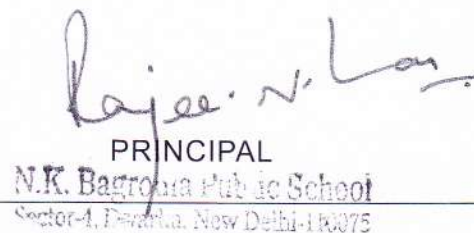 Rajee N.
PRINCIPAL
N.K. Bagrodia Public School
Sector-4, Dwarka, New Delhi-110075